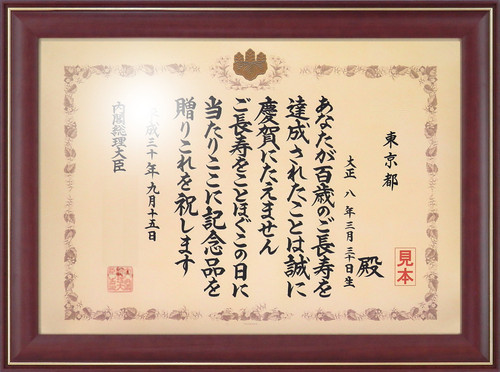 東京都
殿
大正 八 年 三月 三十日生
あなたが百歳のご長寿を
達成されたことは誠に
慶賀にたえません
ご長寿をことほぎこの日に
当たりここに記念品を
贈りこれを祝します
成三十年 九月十五日
内閣総理大臣
見本